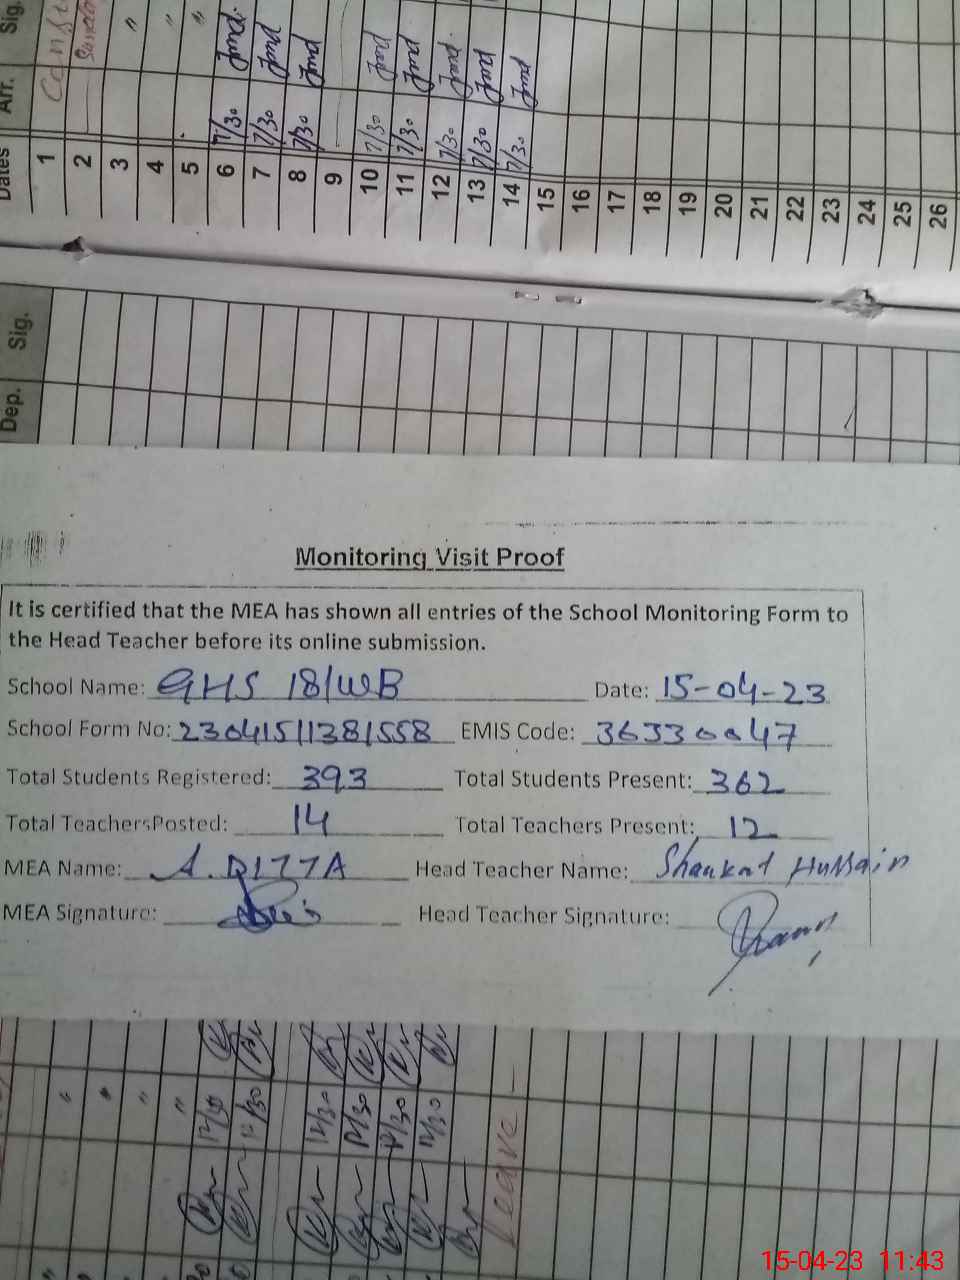 Dates Arr. Sig.
1
2
3 "
4 "
5 "
6 7/30
7 7/30
8 7/30
9
10 7/30
11 7/30
12 7/30
13 7/30
14 7/30
15
16
17
18
19
20
21
22
23
24
25
26
Dep. Sig.
Monitoring Visit Proof
It is certified that the MEA has shown all entries of the School Monitoring Form to
the Head Teacher before its online submission.
School Name: GHS 18/WB Date: 15-04-23
School Form No: 23041511381558 EMIS Code: 36330047
Total Students Registered: 393 Total Students Present: 362
Total TeachersPosted: 14 Total Teachers Present: 12
MEA Name: A. DITTA Head Teacher Name: Shaukat Hussain
MEA Signature: Head Teacher Signature:
12/30
12/30
12/30
12/30
12/30
12/30
Leave
15-04-23 11:43